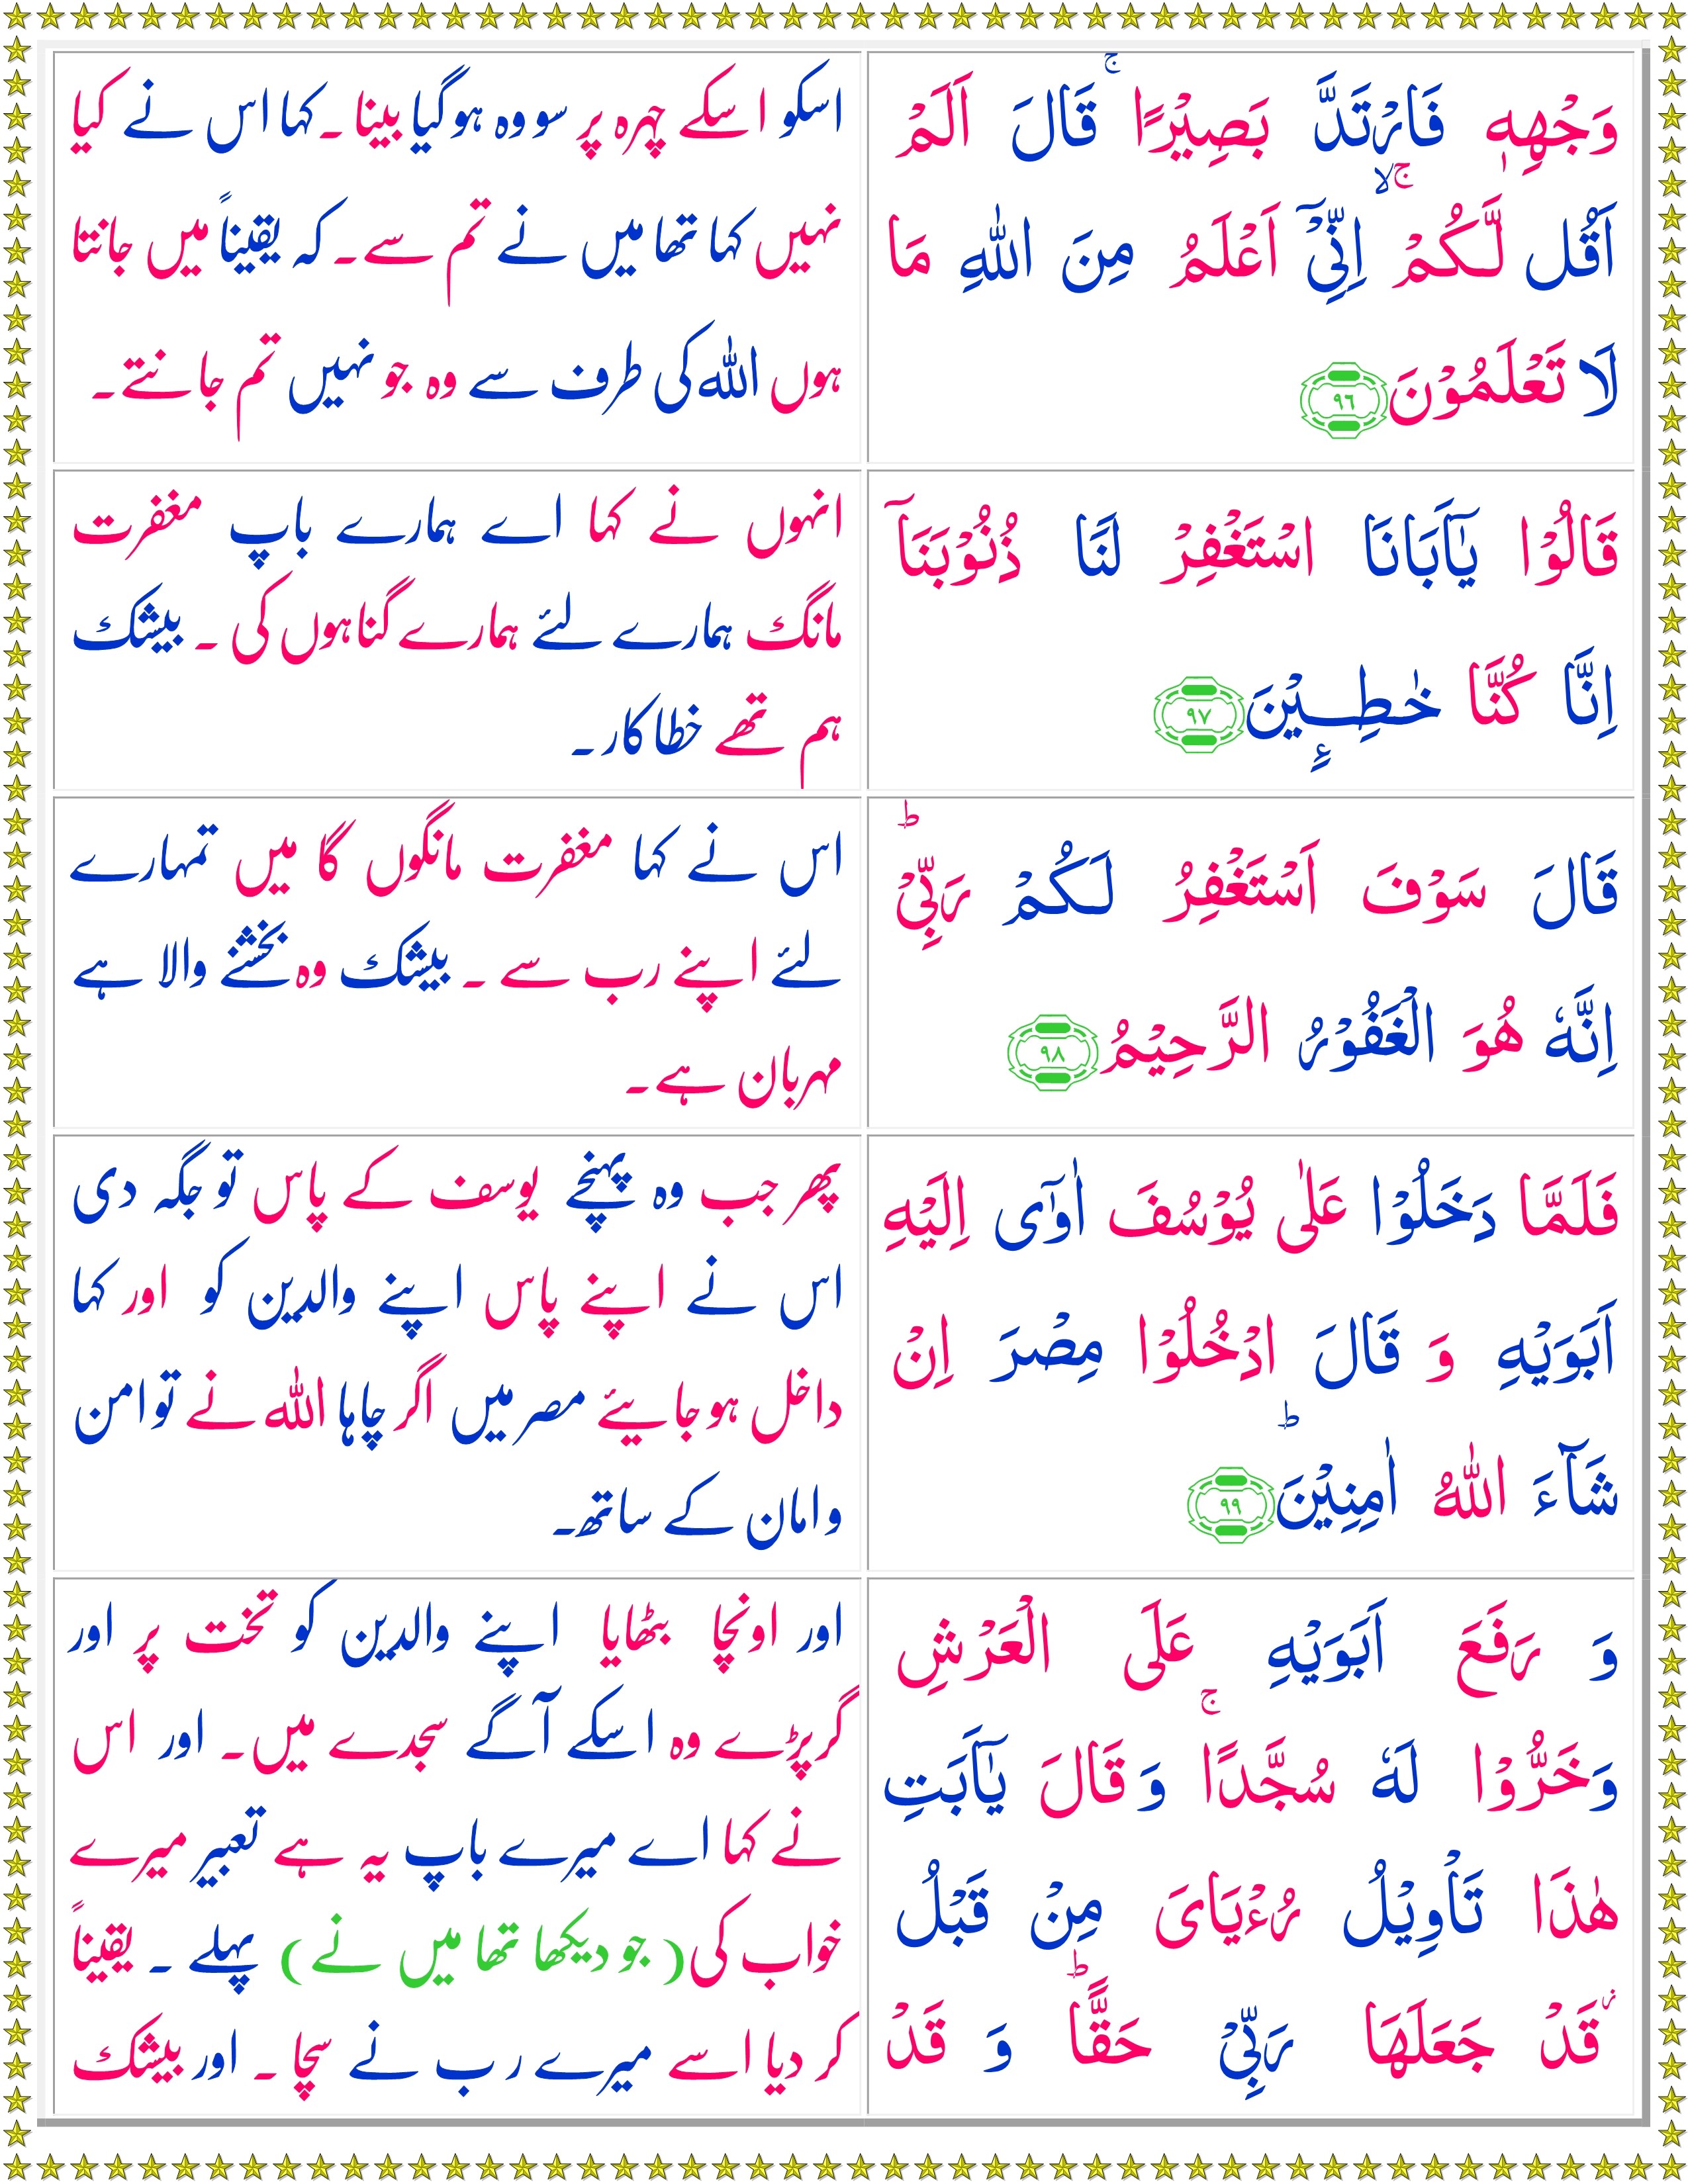 وَجْهِهٖ فَارْتَدَّ بَصِيْرًا ۚ قَالَ اَلَمْ
اَقُل لَّكُمْ ۚۙ اِنِّىْۤ اَعْلَمُ مِنَ اللّٰهِ مَا
لَا تَعْلَمُوْنَ ﴿٩٦﴾
اسکو اسکے چہرہ پر سو وہ ہوگیا بینا۔ کہا اس نے کیا
نہیں کہا تھا میں نے تم سے۔ کہ یقیناً میں جانتا
ہوں اللہ کی طرف سے وہ جو نہیں تم جانتے۔
قَالُوْا يٰۤاَبَانَا اسْتَغْفِرْ لَنَا ذُنُوْبَنَاۤ
اِنَّا كُنَّا خٰطِـٕـيْنَ ﴿٩٧﴾
انہوں نے کہا اے ہمارے باپ مغفرت
مانگ ہمارے لئے ہمارے گناہوں کی ۔ بیشک
ہم تھے خطا کار۔
قَالَ سَوْفَ اَسْتَغْفِرُ لَـكُمْ رَبِّىْؕ
اِنَّهٗ هُوَ الْغَفُوْرُ الرَّحِيْمُ ﴿٩٨﴾
اس نے کہا مغفرت مانگوں گا میں تمہارے
لئے اپنے رب سے ۔ بیشک وہ بخشنے والا ہے
مہربان ہے۔
فَلَمَّا دَخَلُوْا عَلٰى يُوْسُفَ اٰوٰٓى اِلَيْهِ
اَبَوَيْهِ وَ قَالَ ادْخُلُوْا مِصْرَ اِنْ
شَآءَ اللّٰهُ اٰمِنِيْنَؕ ﴿٩٩﴾
پھر جب وہ پہنچے یوسف کے پاس تو جگہ دی
اس نے اپنے پاس اپنے والدین کو اور کہا
داخل ہو جایئے مصر میں اگر چاہا اللہ نے تو امن
و امان کے ساتھ۔
وَ رَفَعَ اَبَوَيْهِ عَلَى الْعَرْشِ
وَخَرُّوْا لَهٗ سُجَّدًا ۚ وَ قَالَ يٰۤاَبَتِ
هٰذَا تَاْوِيْلُ رُءْيَاىَ مِنْ قَبْلُ
قَدْ جَعَلَهَا رَبِّىْ حَقًّا ؕ وَ قَدْ
اور اونچا بٹھایا اپنے والدین کو تخت پر اور
گر پڑے وہ اسکے آگے سجدے میں۔ اور اس
نے کہا اے میرے باپ یہ ہے تعبیر میرے
خواب کی ( جو دیکھا تھا میں نے ) پہلے ۔ یقیناً
کر دیا اسے میرے رب نے سچا ۔ اور بیشک